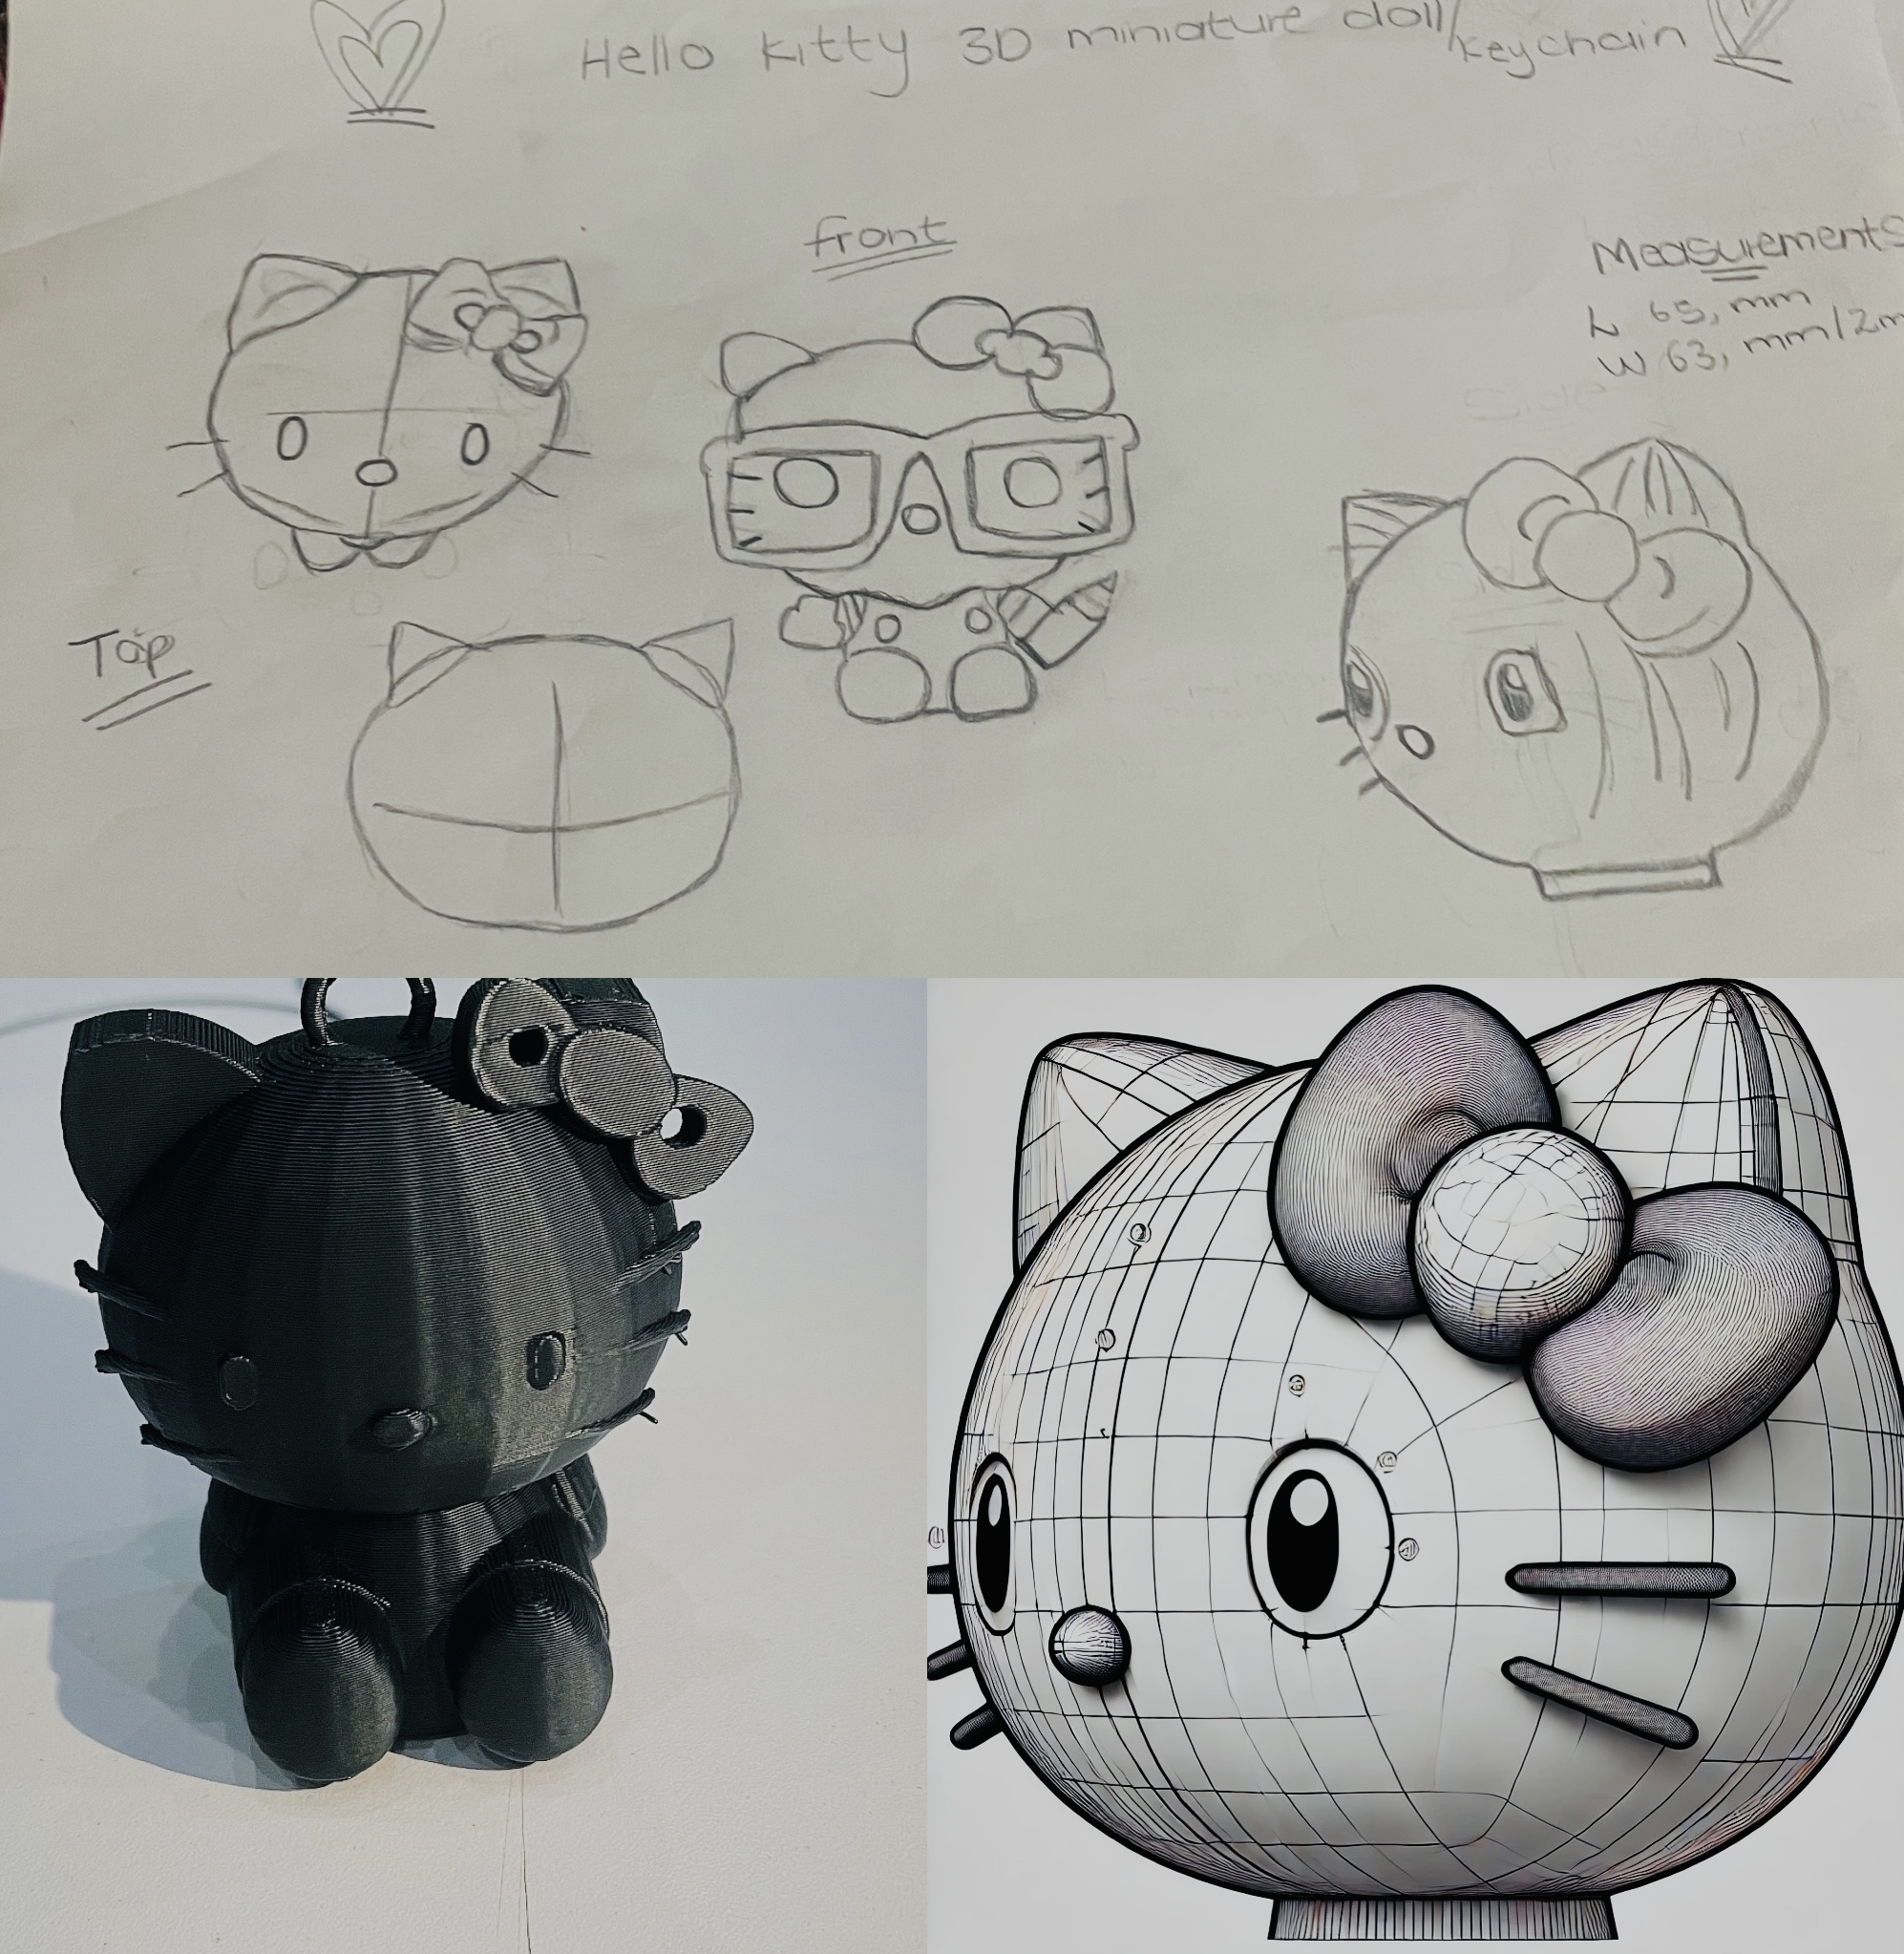 Hello Kitty 3D miniature doll/
Keychain
front
Measurements
L 65, mm
W 63, mm/2m
Side
Top